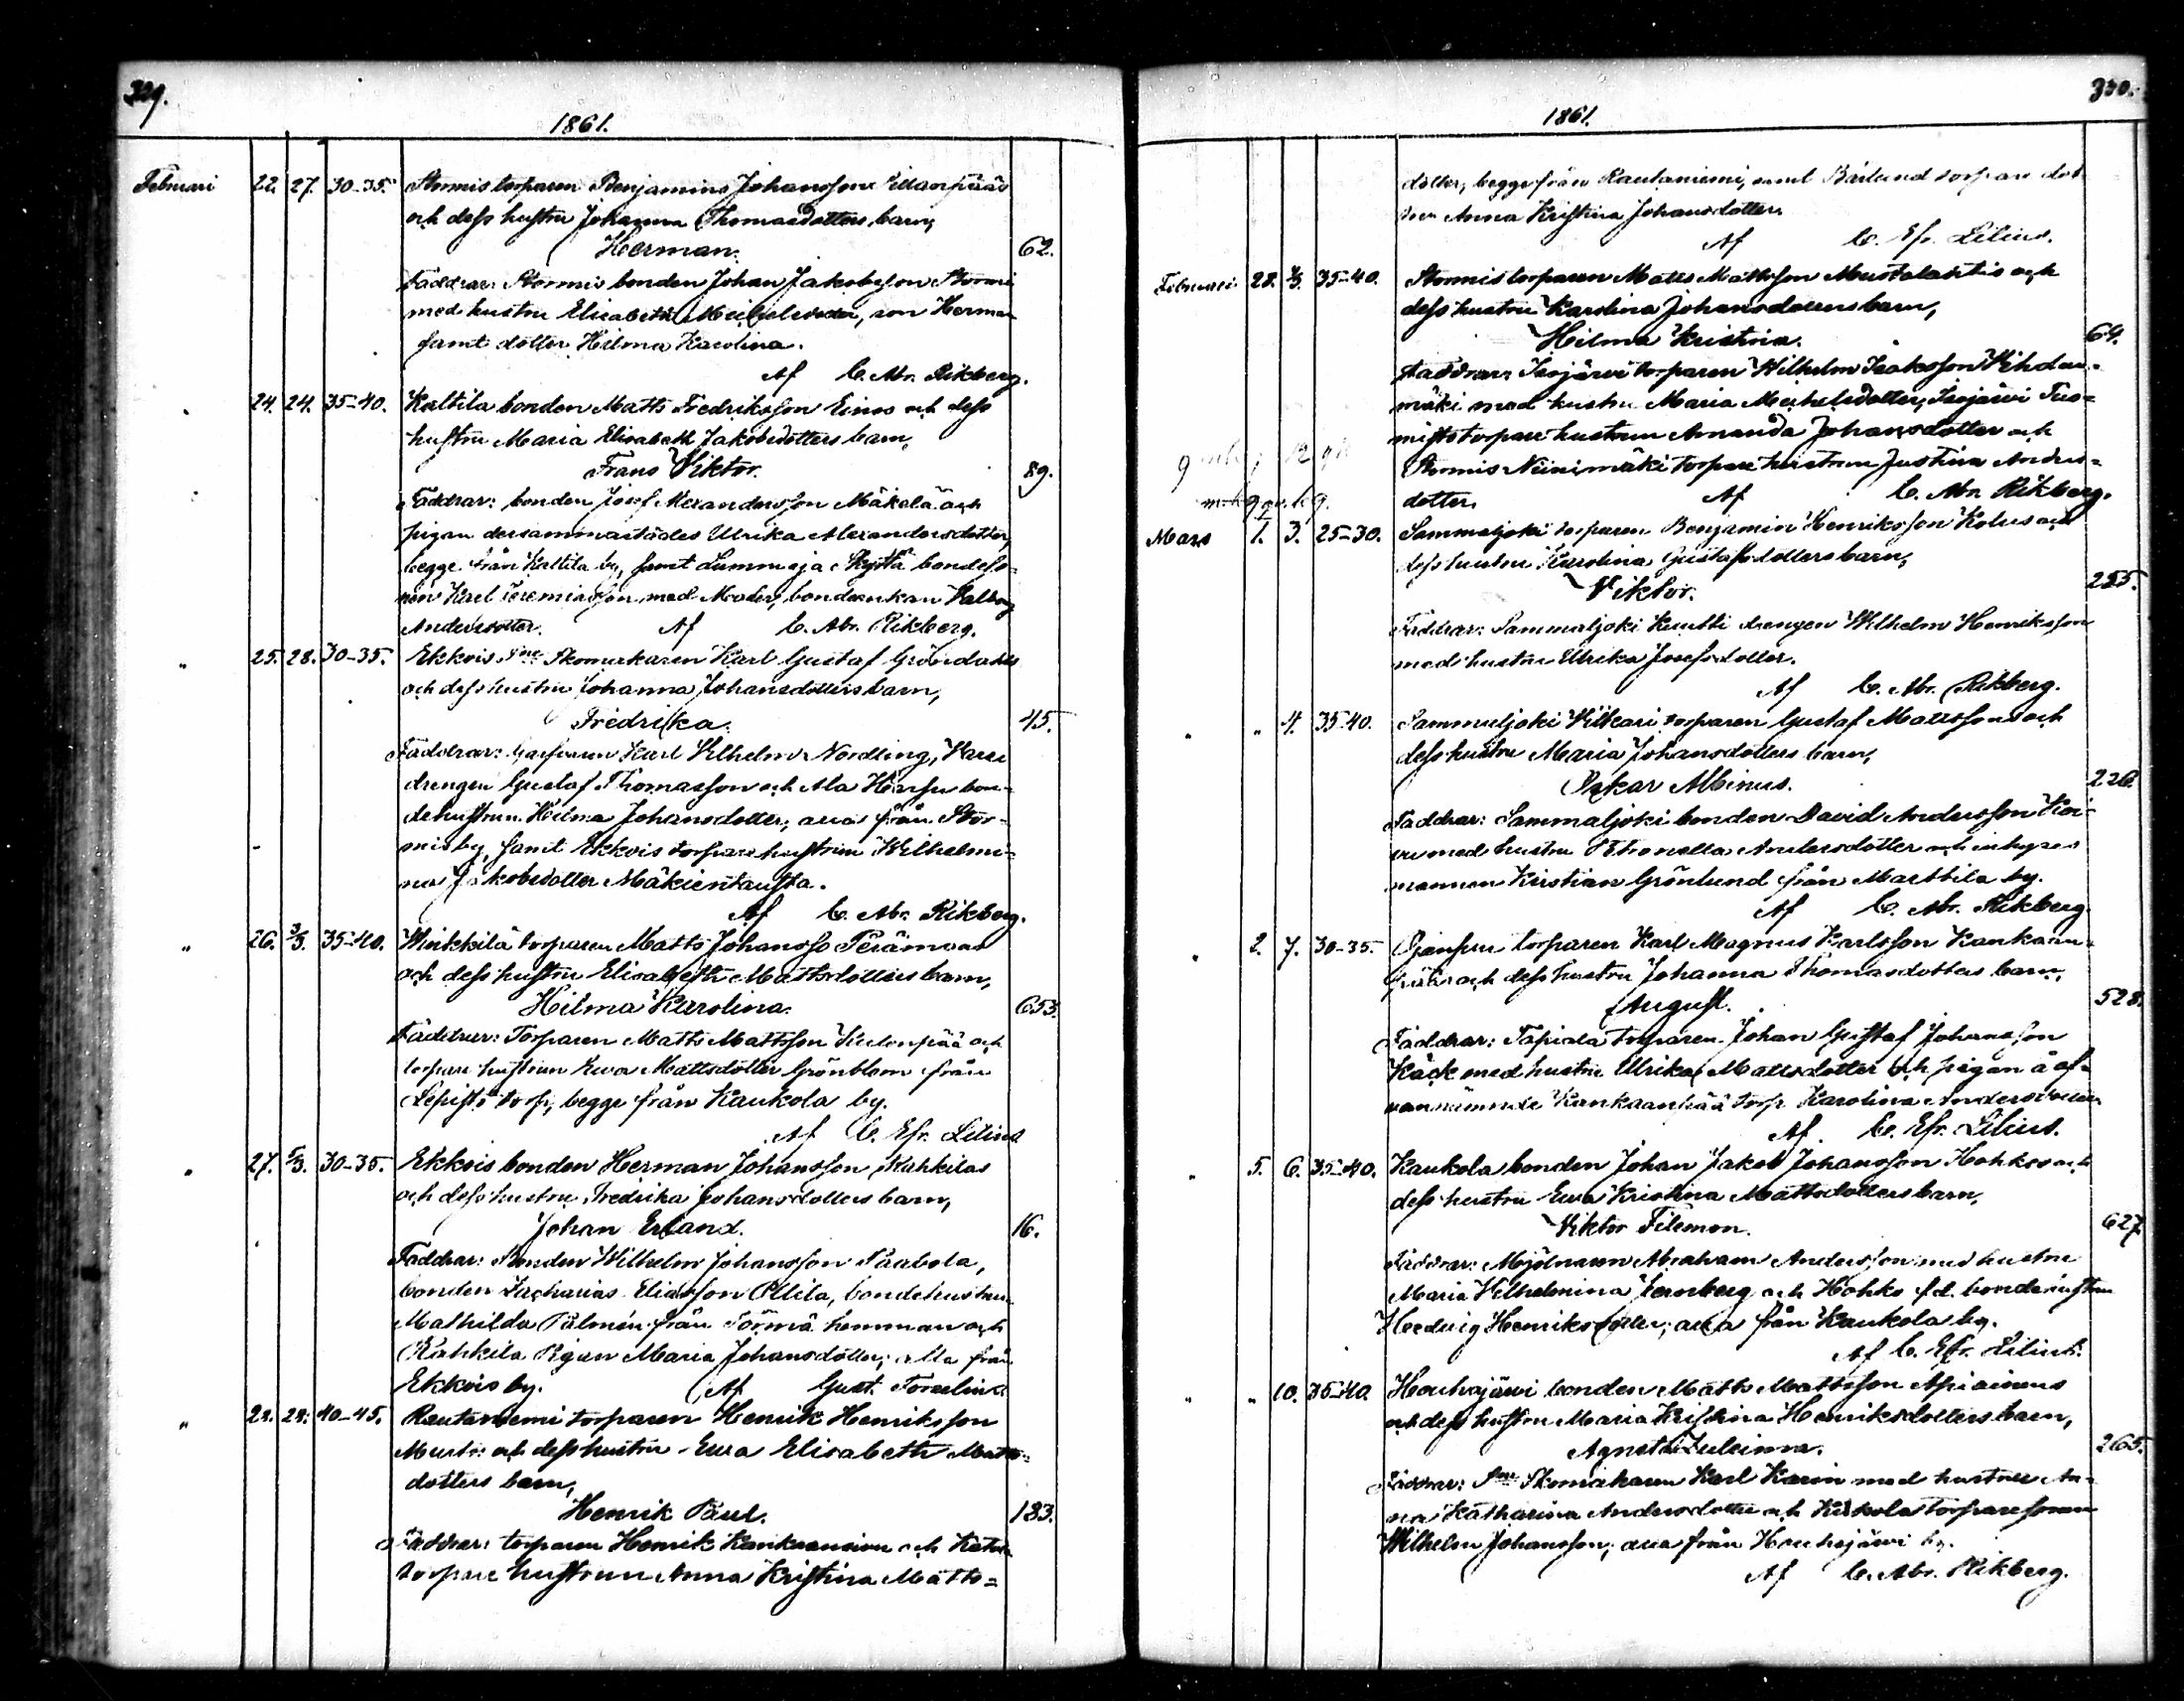 329.
1861.
Februari 22. 27. 30-35. Stormis torparen Benjamins Johansson
och dess hustru Johanna Thomasdotters barn,
Herman. 62.
Faddrar: Stormis bonden Johan Jakobsson Stormi
med hustru Elisabeth Michelsdotter, son Herman
samt dotter Hilma Karolina.
Af C. Abr. Rikberg.
" 24. 24. 35-40. Kaltila bonden Matts Fredriksson Einos och dess
hustru Maria Elisabeth Jakobsdotters barn,
Frans Viktor. 89.
Faddrar: bonden Josef Alexandersson Mäkelä och
pigan dersammastädes Ulrika Alexandersdotter,
begge från Kaltila by, samt Lummaja Skyttä bondeso-
nen Karl Jeremiasson med Moder, bondeenkan Valborg
Andersdotter. Af C. Abr. Rikberg.
" 25. 28. 30-35. Ekkois Sne Skomakaren Karl Gustaf Gröndahls
och dess hustru Johanna Johansdotters barn,
Fredrika. 45.
Faddrar: Karl Vilhelm Nordling,
drengen Gustaf Thomasson och Ala Hoursu bon-
dehustrun Hilma Johansdotter, alla från Stor-
mis by, samt Ekkois torpare hustrun Wilhelmi-
na Jakobsdotter Mäkientausta.
Af C. Abr. Rikberg.
" 26. 3/3. 35-40. Winkkilä torparen Matts Johansso Perämaas
och dess hustru Elisabeth Mattsdotters barn,
Hilma Karolina. 653.
Faddrar: Torparen Matts Mattsson Kulonpää och
torpare hustrun Eva Mattsdotter Grönblom från
Lepistö torp, begge från Kaukola by.
Af C. Efr. Lilius
" 27. 5/3. 30-35. Ekkois bonden Herman Johansson Rahkilas
och dess hustru Fredrika Johansdotters barn,
Johan Erland. 16.
Faddrar: Bonden Wilhelm Johansson Paabola,
bonden Zacharias Eliasson Ollila, bondehustrun
Mathilda Palmén från Törmä hemman och
Rahkila Pigan Maria Johansdotter; alla från
Ekkois by. Af Gust. Forselius
" 28. 28. 40-45. Rautaniemi torparen Henrik Henriksson
och dess hustru Eva Elisabeth Matts-
dotters barn,
Henrik Paul. 183.
Faddrar: torparen Henrik Kankaansivu och
torpare hustrun Anna Kristina Matts=
330.
1861.
dotter, begge från Rautaniemi, samt Bärlund torpare dot-
tren Anna Kristina Johansdotter.
Af C. Efr. Lilius.
Februari 28. 3/3. 35-40. Stormis torparen Matts Mattsson Mustalahtis och
dess hustru Karolina Johansdotters barn,
Hilma Kristina. 69.
Faddrar: Isojärvi torparen Wilhelm Isaksson Vihdan-
mäki med hustru Maria Michelsdotter, Isojärvi
torpare hustrun Amanda Johansdotter och
Stormis Niinimäki torpare hustrun Justina Anders-
dotter. Af C. Abr. Rikberg.
Mars 1. 3. 25-30. Sammaljoki torparen Benjamin Henriksson och
dess hustru Karolina Gustafsdotters barn,
Viktor. 255.
Faddrar: Sammaljoki Kuutti drengen Wilhelm Henriksson
med hustru Ulrika Josefsdotter.
Af C. Abr. Rikberg.
" " 4. 35-40. Sammaljoki Vilkari torparen Gustaf Mattssons och
dess hustru Maria Johansdotters barn,
Oskar Albinus. 226.
Faddrar: Sammaljoki bonden David Andersson Koi-
vu med hustru Petronella Andersdotter och inhyses
mannen Kristian Grönlund från Marttila by.
Af C. Abr. Rikberg.
" 2. 7. 30-35. Ojansuu torparen Karl Magnus Karlsson Kankaan-
pääs och dess hustru Johanna Thomasdotters barn,
August. 528.
Faddrar: Tapiola torparen Johan Gustaf Johansson
Käck med hustru Ulrika Mattsdotter och pigan å of-
vannämnde Kankaanpää torp Karolina Andersdotter
Af. C. Efr. Lilius.
" 5. 6. 35-40. Kaukola bonden Johan Jakob Johansson Hohkos och
dess hustru Eva Kristina Mattsdotters barn,
Viktor Filemon. 627
Faddrar: Mjölnaren Abraham Andersson med hustru
Maria Vilhelmina Jernberg och Hohko f.d. bondehustrun
Hedvig Henriksdotter; alla från Kaukola by.
Af C. Efr. Lilius.
" " 10. 35-40. Houhajärvi bonden Matts Mattsson Apiainens
och dess hustru Maria Kristina Henriksdotters barn,
Agneta Zuleima. 265.
Faddrar: Sne Skomakaren Karl Karin med hustru An-
na Katharina Andersdotter och Kiskola torparesonen
Wilhelm Johansson; alla från Houhajärvi by.
Af C. Abr. Rikberg.